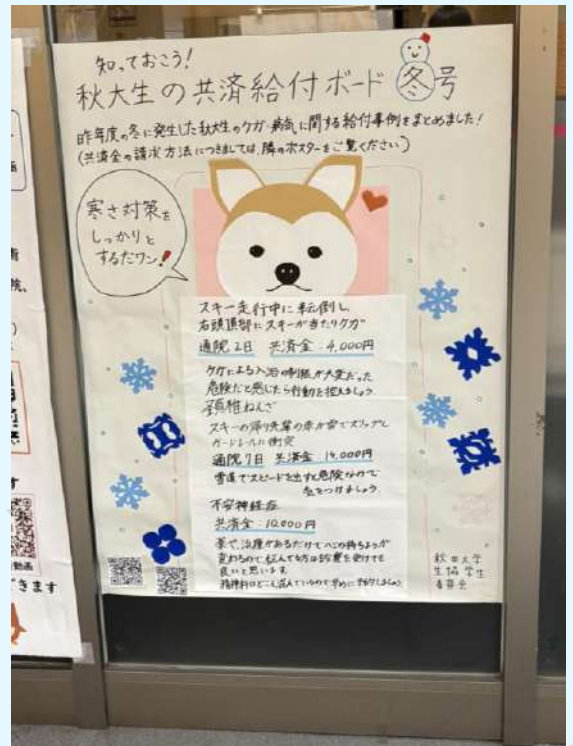 知っておこう!
秋大生の共済給付ボード 冬号
昨年度の冬に発生した秋大生のケガ・病気に関する給付事例をまとめました!
(共済金の請求方法につきましては、隣のポスターをご覧ください)
寒さ対策を
しっかりと
するだワン!
スキー走行中に転倒し、
右頭頂部にスキーが当たりケガ
通院2日 共済金:4,000円
ケガによる入浴の制限が大変だった
危険だと感じたら行動を控えましょう
頚椎ねんざ
スキーの帰り先輩の車が雪でスリップし
ガードレールに衝突
通院7日 共済金:14,000円
雪道でスピードを出すと危険なので
気をつけましょう。
不安神経症
共済金:10,000円
薬で、治療があるだけで心の持ちようが
変わるので、悩んでる方は診察を受けても
良いと思います
精神科はどこも混んでいるので早めに予約しましょう
秋田大学
生協学生
委員会
院、
す
動画
きます